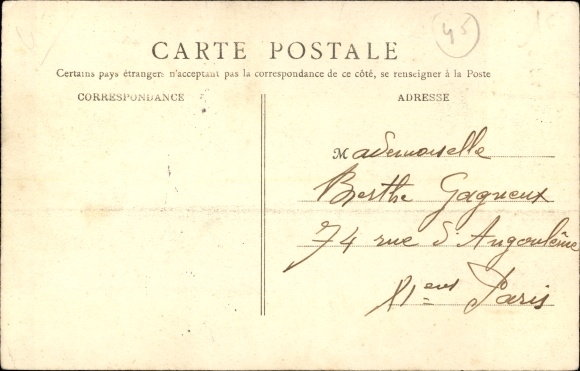 45
CARTE POSTALE
Certains pays étrangers n'acceptant pas la correspondance de ce côté, se renseigner à la Poste
CORRESPONDANCE
ADRESSE
Mademoiselle
Berthe Gagneux
74 rue d'Angoulême
XIeme Paris